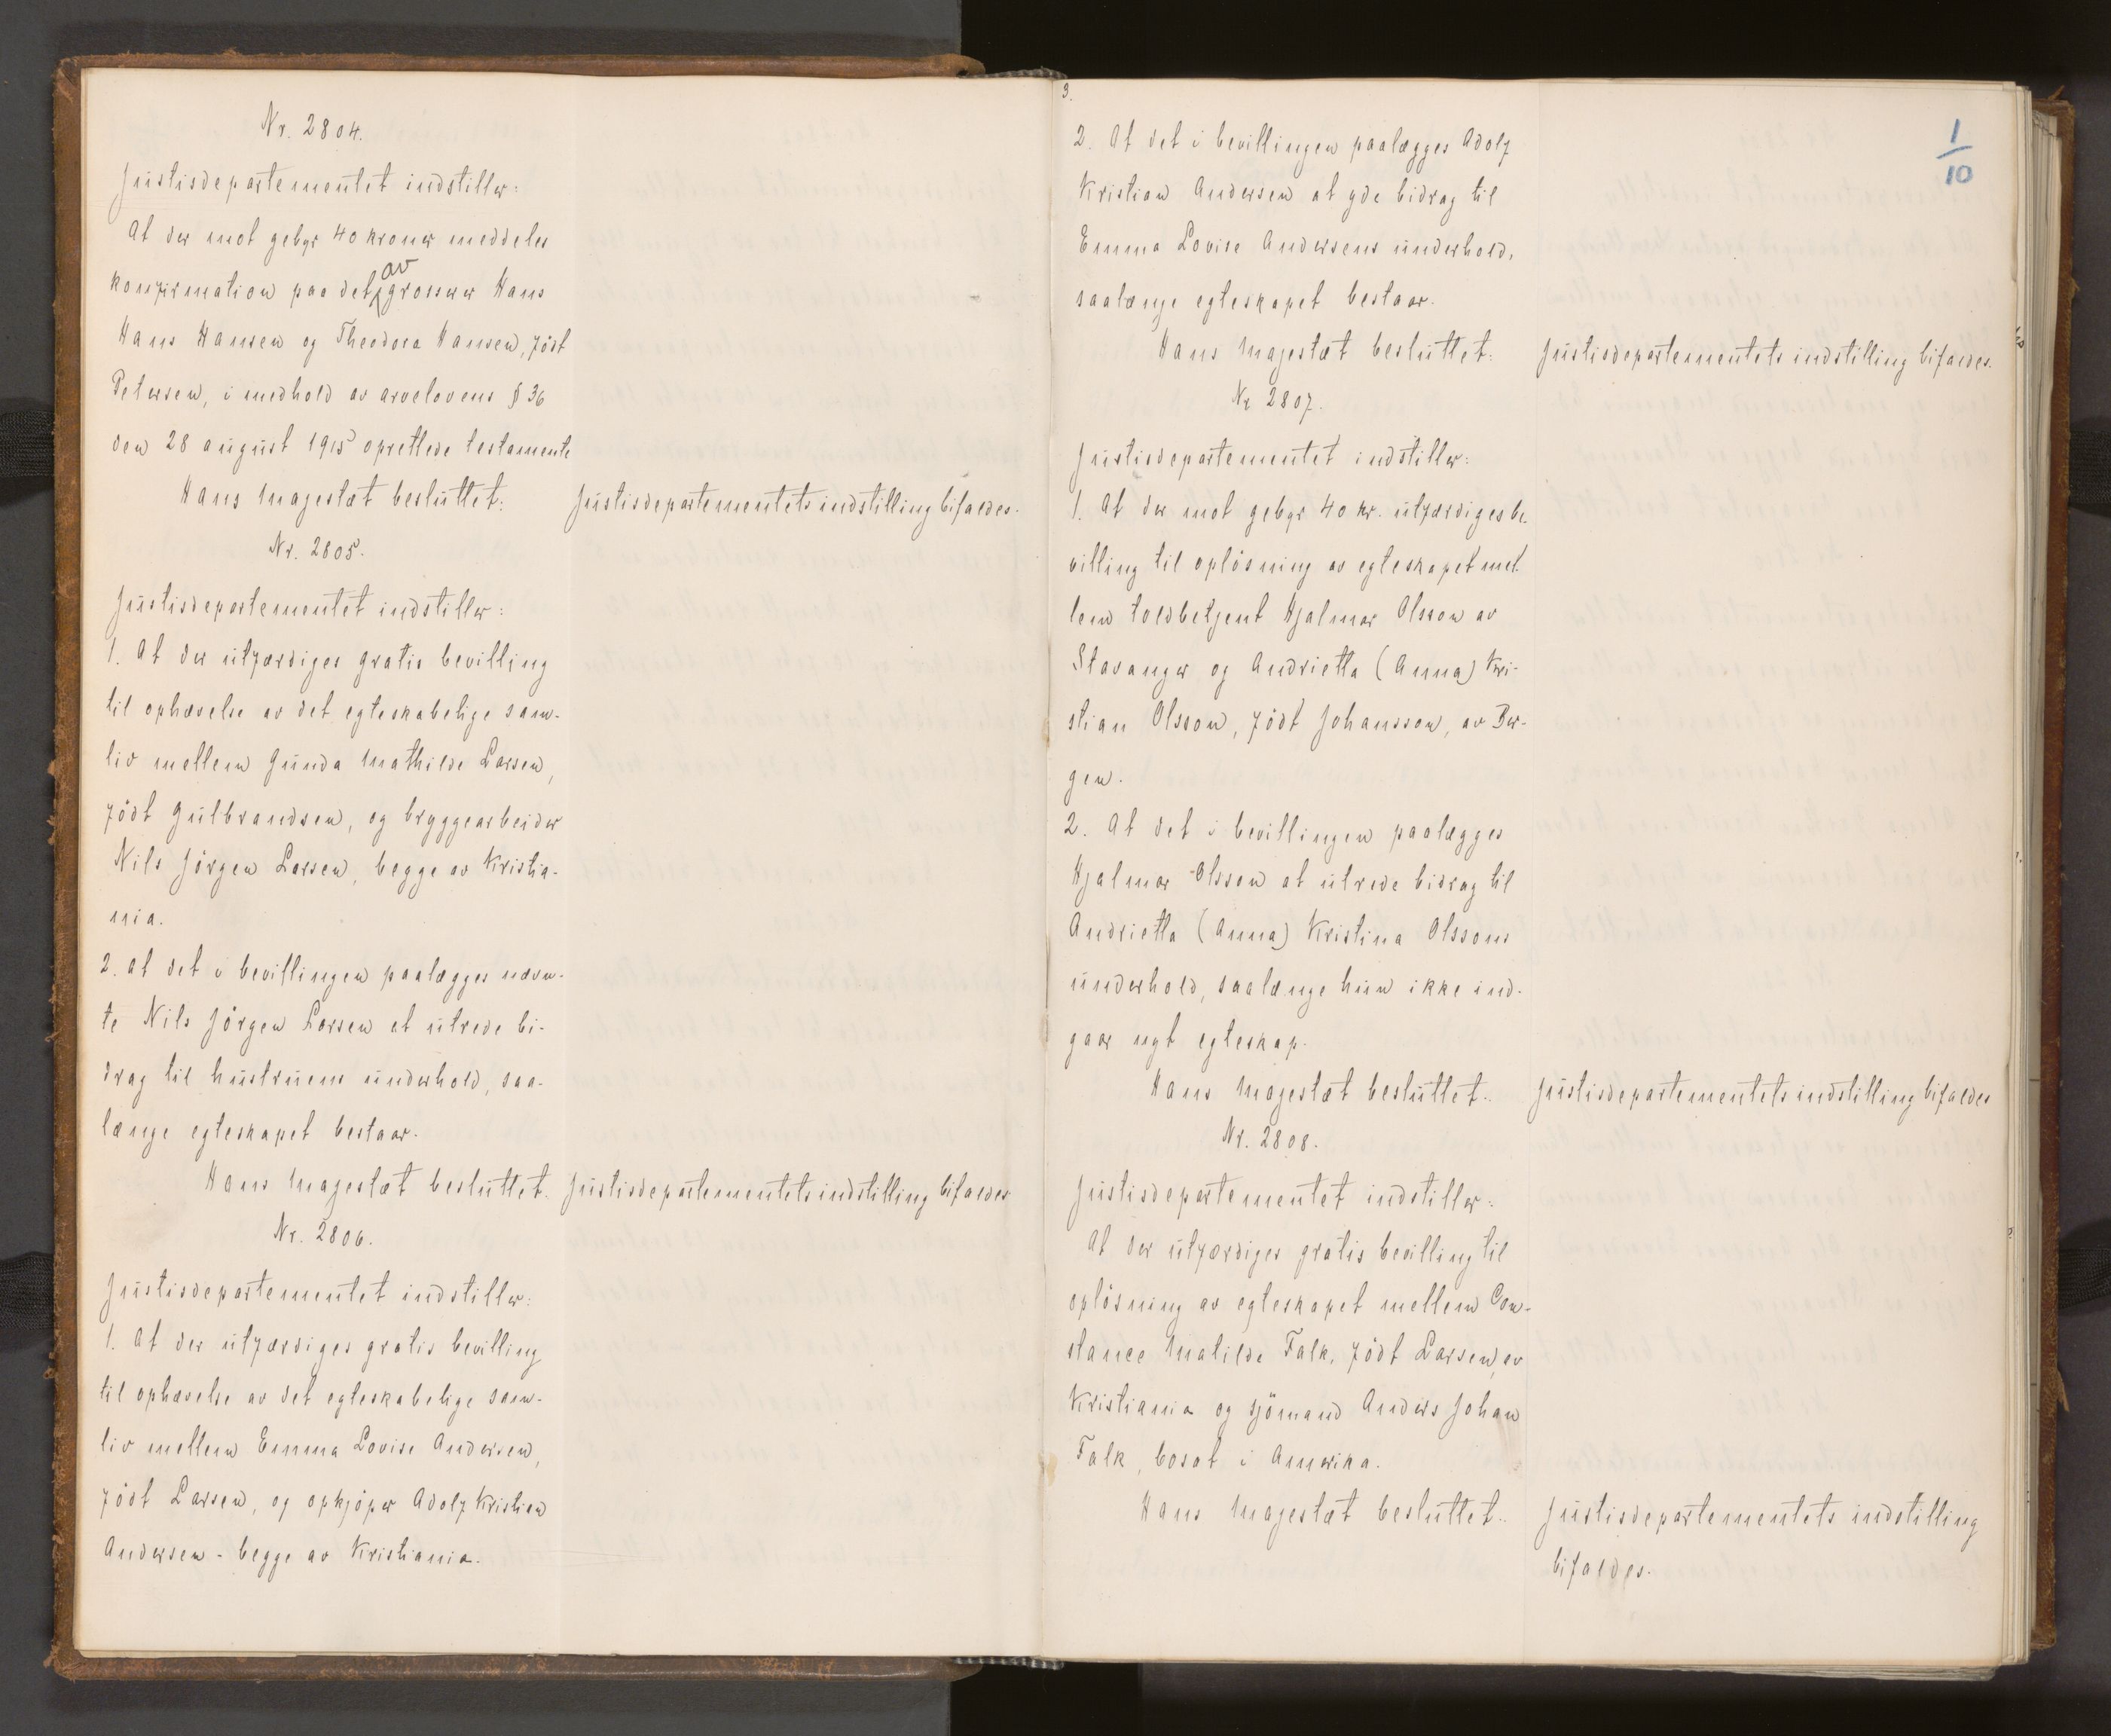 Nr. 2804.
Justisdepartementet indstiller:
At der mot gebyr 40 kroner meddeles
av
konfirmation paa det grosserer Hans
Hans Hansen og Theodora Hansen, född
Petersen, i medhold av arvelovens § 36
den 28 august 1915 oprettede testamente
Hans Majestæt besluttet: Justisdepartementets indstilling bifaldes.
Nr. 2805.
Justisdepartementet indstiller:
1. At der utfærdiges gratis bevilling
til ophævelse av det egteskabelige sam-
liv mellem Gunda Mathilde Larsen,
födt Gulbrandsen, og bryggearbeider
Nils Jörgen Larsen, begge av Kristia-
nia.
2. at det i bevillingen paalægges nævn-
te Nils Jörgen Larsen at utrede bi-
drag til hustruens underhold, saa-
længe egteskapet bestaar.
Hans Majestæt besluttet. Justisdepartementets indstilling bifaldes
Nr. 2806.
Justisdepartementet indstiller:
1. At der utfærdiges gratis bevilling
til ophævelse av det egteskabelige sam-
liv mellem Emma Lovise Andersen,
födt Larsen, og opkjöper Adolf Kristian
Andersen - begge av Kristiania.
3.
1
10
2. At det i bevillingen paalægges Adolf
Kristian Andersen at yde bidrag til
Emma Lovise Andersens underhold,
saalænge egteskapet bestaar.
Hans Majestæt besluttet: Justisdepartementets indstilling bifaldes.
Nr 2807.
Justisdepartementet indstiller:
1. At der mot gebyr 40 kr. utfærdiges be-
villing til oplösning av egteskapet mel-
lem toldbetjent Hjalmar Olsson av
Stavanger og Andrietta (Anna) Kri-
stian Olsson, födt Johansson, av Ber-
gen.
2. At det i bevillingen paalægges
Hjalmar Olsson at utrede bidrag til
Andrietta (Anna) Kristina Olssons
underhold, saalænge hun ikke ind-
gaar nyt egteskap.
Hans Majestæt besluttet. Justisdepartementets indstilling bifaldes
Nr. 2808.
Justisdepartementet indstiller:
At der utfærdiges gratis bevilling til
oplösning av egteskapet mellem Con-
stance Matilde Falk, födt Larsen, av
Kristiania og sjömand Anders Johan
Falk, bosat i Amerika.
Hans Majestæt besluttet. Justisdepartementets indstilling
bifaldes.